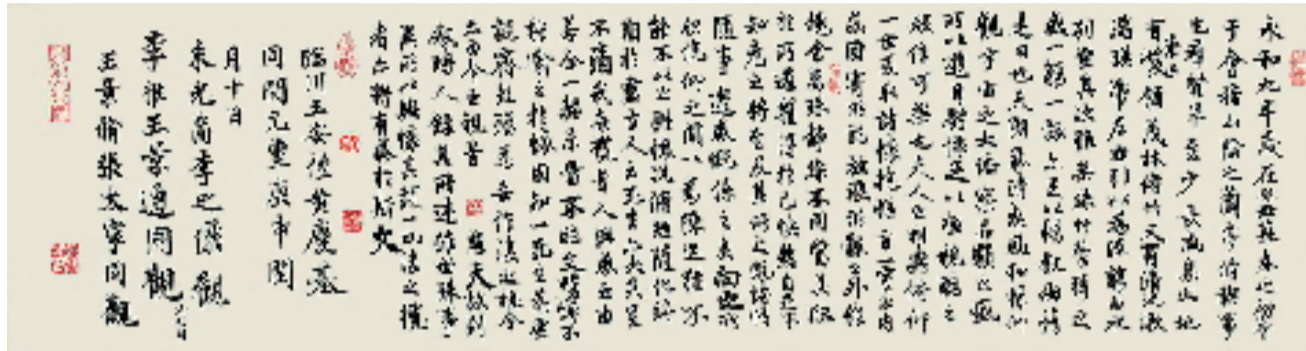 永和九年歲在癸丑暮春之初會
于會稽山陰之蘭亭脩禊事
也羣賢畢至少長咸集此地
有崇山峻領茂林脩竹又有清流激
湍暎帶左右引以為流觴曲水
列坐其次雖無絲竹管弦之
盛一觴一詠亦足以暢敘幽情
是日也天朗氣清惠風和暢仰
觀宇宙之大俯察品類之盛
所以遊目騁懷足以極視聽之
娛信可樂也夫人之相與俯仰
一世或取諸懷抱悟言一室之內
或因寄所託放浪形骸之外雖
趣舍萬殊靜躁不同當其欣
於所遇蹔得於己怏然自足不
知老之將至及其所之既惓情
隨事遷感慨係之矣向之所
欣俛仰之閒以為陳迹猶不
能不以之興懷況脩短隨化終
期於盡古人云死生亦大矣豈
不痛哉每攬昔人興感之由
若合一契未嘗不臨文嗟悼不
能喻之於懷固知一死生為虛
誕齊彭殤為妄作後之視今
亦由今之視昔 悲夫故列
敘時人錄其所述雖世殊事
異所以興懷其致一也後之攬
者亦將有感於斯文
臨川王安禮黃慶基
同閱元豐庚申閏
月十日
朱光裔李之儀觀
李秬王景通同觀
王景脩張太寧同觀